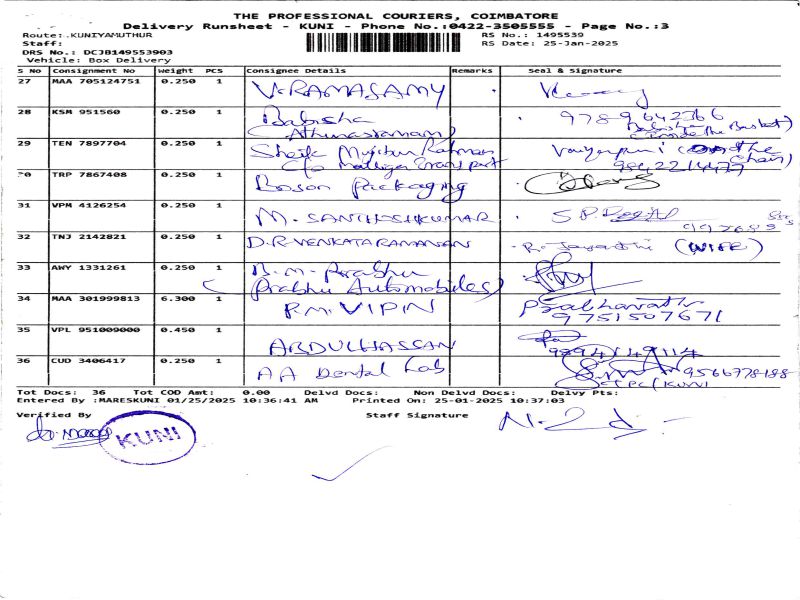 THE PROFESSIONAL COURIERS, COIMBATORE
Delivery Runsheet - KUNI - Phone No.:0422-3505555 - Page No.:3
Route:.KUNIYAMUTHUR RS No.: 1495539
Staff: RS Date: 25-Jan-2025
DRS No.: DCJB149553903
Vehicle: Box Delivery
S No Consignment No Weight PCS Consignee Details Remarks Seal & Signature
27 MAA 705124751 0.250 1 V. RAMASAMY
28 KSM 951560 0.250 1 Babisha 9789642366
(Athmasramam) (inside the Basket)
29 TEN 7897704 0.250 1 Sheik Mujibur Rahman (on the Chair)
C/o transport 9842214477
30 TRP 7867408 0.250 1 Boson Packaging
31 VPM 4126254 0.250 1 M. SANTHASHKUMAR
32 TNJ 2142821 0.250 1 D.R.VENKATARAMANAN R. Jayanthi (WIFE)
33 AWY 1331261 0.250 1 B.M. Prabhu
(Prabhu Automobiles)
34 MAA 301999813 6.300 1 P.M. VIPIN Prabhavathi
9751507671
35 VPL 951009000 0.450 1 ABDULHASSAN
36 CUD 3406417 0.250 1 AA Dental Lab 9566778188
TPC/KUNI
Tot Docs: 36 Tot COD Amt: 0.00 Delvd Docs: Non Delvd Docs: Delvy Pts:
Entered By :MARESKUNI 01/25/2025 10:36:41 AM Printed On: 25-01-2025 10:37:03
Verified By Staff Signature
KUNI